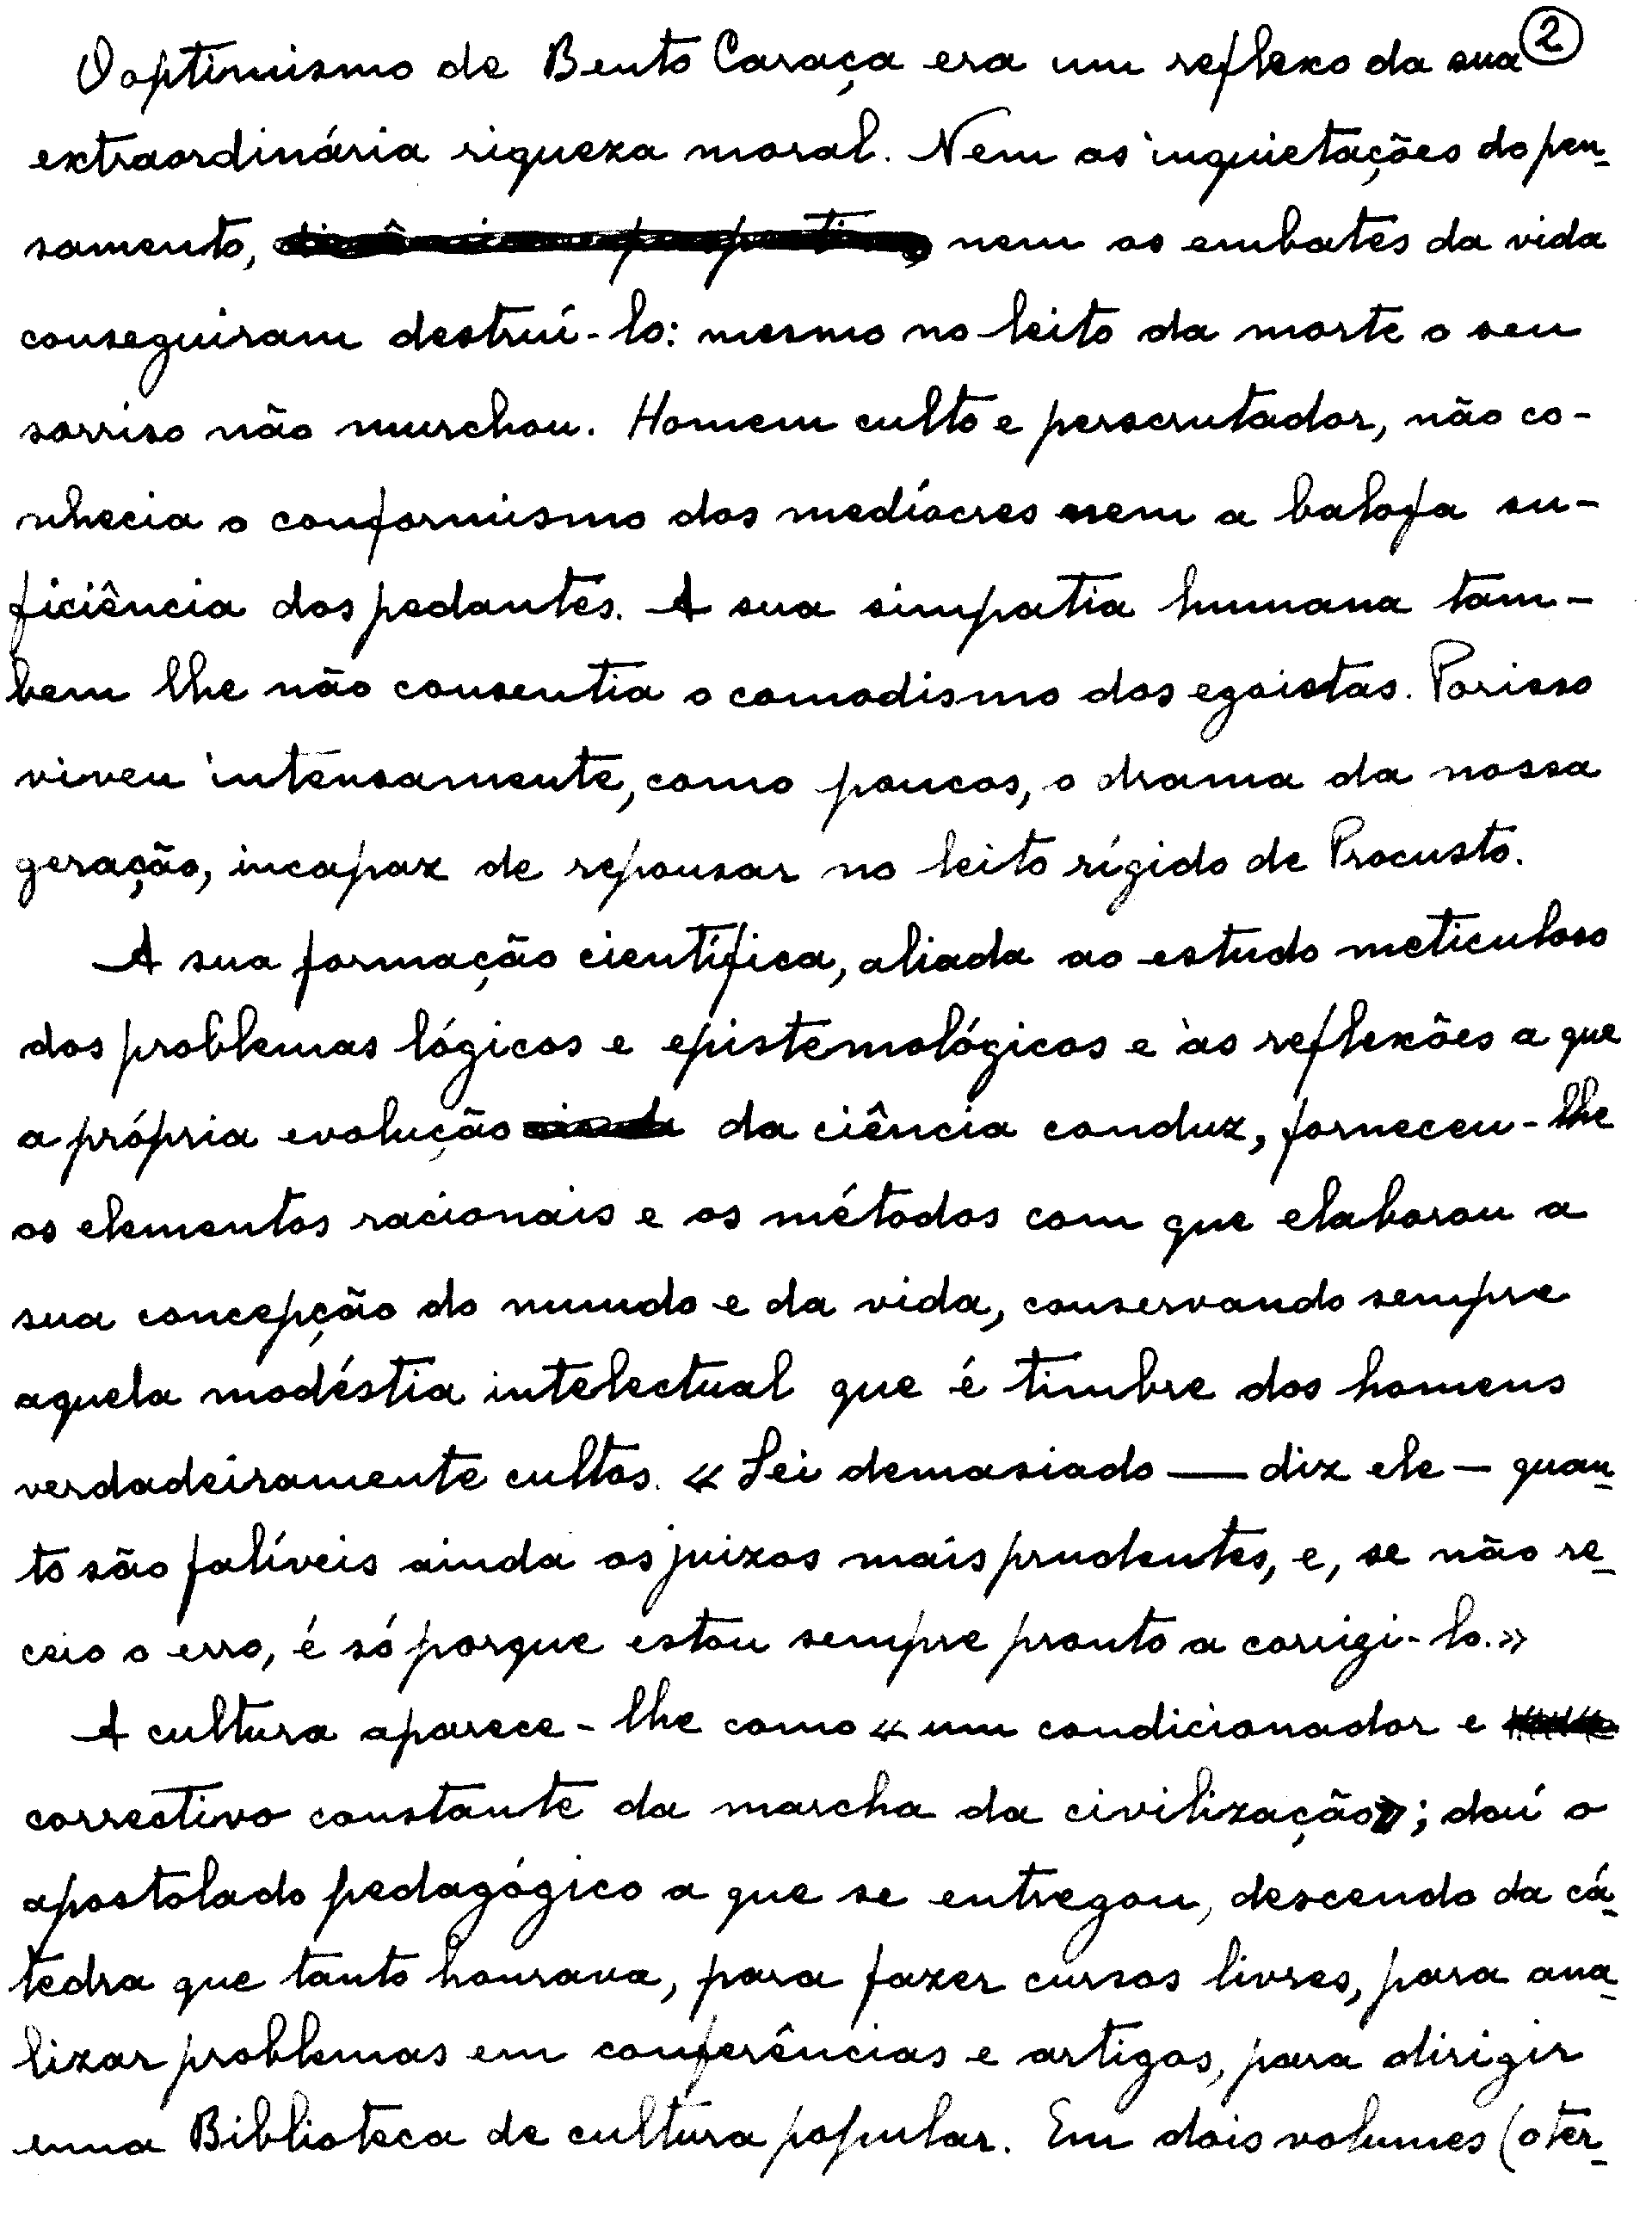 O optimismo de Bento Caraça era um reflexo da sua ②
extraordinária riqueza moral. Nem as inquietações do pen-
samento, nem os embates da vida
conseguiram destruí-lo: mesmo no leito da morte o seu
sorriso não murchou. Homem culto e perscrutador, não co-
nhecia o conformismo dos medíocres nem a balofa su-
ficiência dos pedantes. A sua simpatia humana tam-
bem lhe não consentia o comodismo dos egoistas. Porisso
viveu intensamente, como poucos, o drama da nossa
geração, incapaz de repousar no leito rígido de Procusto.
A sua formação científica, aliada ao estudo meticuloso
dos problemas lógicos e epistemológicos e às reflexões a que
a própria evolução da ciência conduz, forneceu-lhe
os elementos racionais e os métodos com que elaborou a
sua concepção do mundo e da vida, conservando sempre
aquela modéstia intelectual que é timbre dos homens
verdadeiramente cultos. « Sei demasiado — diz ele — quan-
to são falíveis ainda os juizos mais prudentes, e, se não re-
ceio o erro, é só porque estou sempre pronto a corrigi-lo.»
A cultura aparece-lhe como « um condicionador e
correctivo constante da marcha da civilização»; daí o
apostolado pedagógico a que se entregou, descendo da cá-
tedra que tanto honrava, para fazer cursos livres, para ana-
lizar problemas em conferências e artigos, para dirigir
uma Biblioteca de cultura popular. Em dois volumes (o ter-